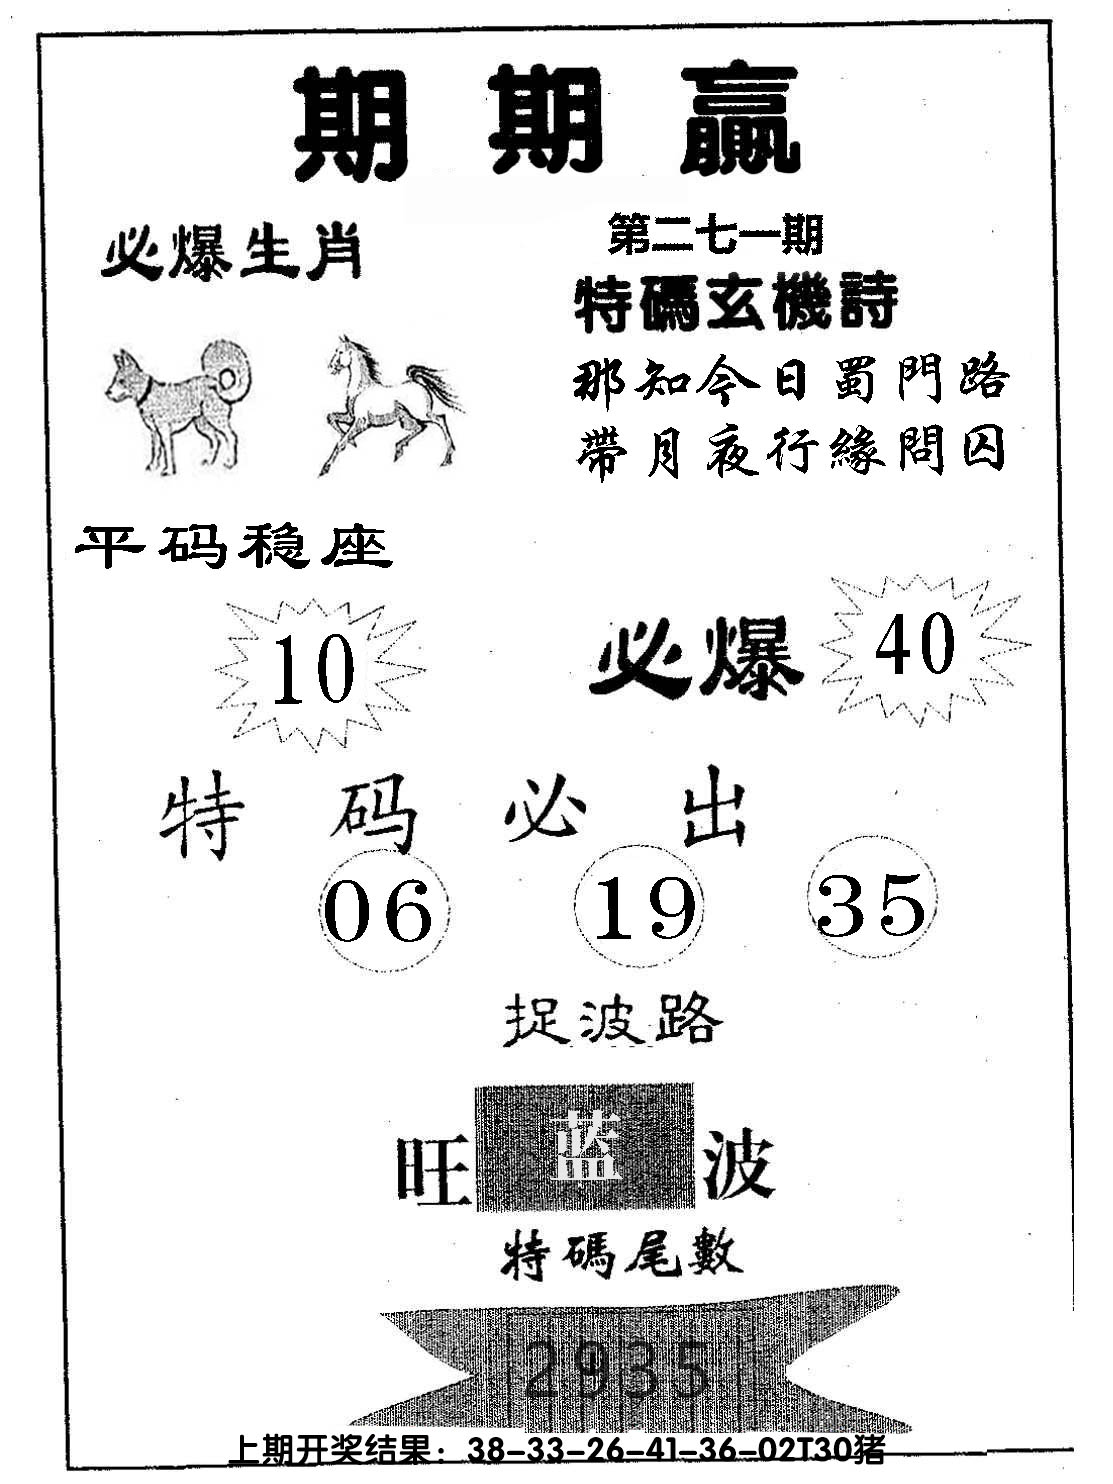 期期贏
必爆生肖
第二七一期
特碼玄機詩
那知今日蜀門路
帶月夜行緣問囚
平码稳座
10
必爆
40
特码必出
06 19 35
捉波路
旺蓝波
特碼尾數
2935
上期开奖结果：38-33-26-41-36-02T30猪